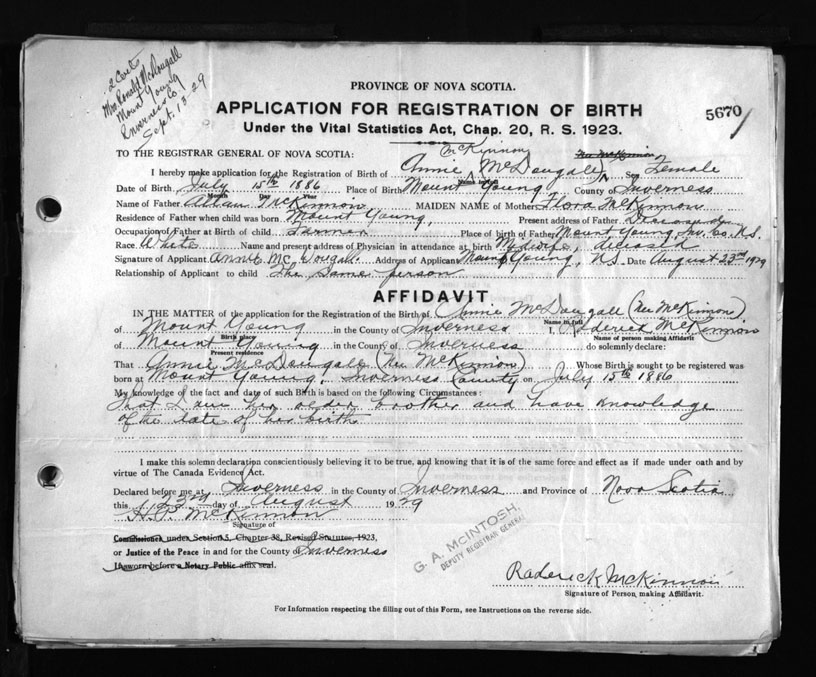 2 Certs
Mrs Ronald McDougall
Mount Young
Inverness Co
Sept. 13-29
PROVINCE OF NOVA SCOTIA.
APPLICATION FOR REGISTRATION OF BIRTH
5670
Under the Vital Statistics Act, Chap. 20, R. S. 1923.
TO THE REGISTRAR GENERAL OF NOVA SCOTIA:
McKinnon
I hereby make application for the Registration of Birth of Annie (McDougall) Sex Female
Name in full
Date of Birth July 15th 1886 Place of Birth Mount Young County of Inverness
Month Day Year
Name of Father McKinnon MAIDEN NAME of Mother Flora McKinnon
Residence of Father when child was born Mount Young, Present address of Father
Occupation of Father at Birth of child Farmer Place of birth of Father Mount Young, Inv. Co. N.S.
Race White Name and present address of Physician in attendance at birth Midwife, deceased
Signature of Applicant Annie McDougall. Address of Applicant Mount Young, N.S. Date August 23rd 1929
Relationship of Applicant to child The same person
AFFIDAVIT
IN THE MATTER of the application for the Registration of the Birth of Annie McDougall (Nee McKinnon)
Name in full
of Mount Young in the County of Inverness I, Roderick McKinnon
Birth place Name of person making Affidavit
of Mount Young in the County of Inverness do solemnly declare:
Present residence
That Annie McDougall (Nee McKinnon) Whose Birth is sought to be registered was
born at Mount Young, Inverness County on July 15th 1886
My knowledge of the fact and date of such Birth is based on the following Circumstances:
That I am her older brother and have knowledge
of the date of her birth
I make this solemn declaration conscientiously believing it to be true, and knowing that it is of the same force and effect as if made under oath and by
virtue of The Canada Evidence Act.
Declared before me at Inverness in the County of Inverness and Province of Nova Scotia
this 23rd day of August 1929
McKinnon
Signature of
Commissioner under Section 5, Chapter 38, Revised Statutes, 1923,
or Justice of the Peace in and for the County of Inverness
If sworn before a Notary Public affix seal.
G. A. McINTOSH,
DEPUTY REGISTRAR GENERAL
Roderick McKinnon
Signature of Person, making Affidavit.
For Information respecting the filling out of this Form, see Instructions on the reverse side.